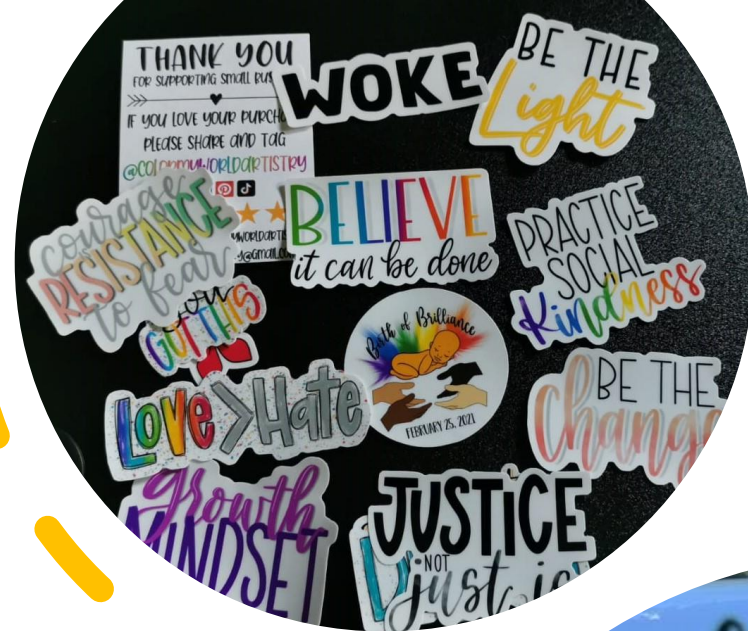 THANK YOU
FOR SUPPORTING SMALL
IF YOU LOVE YOUR
PLEASE SHARE AND TAG
@COLORMYWORLDARTISTRY
WOKE
BE THE
Light
courage
RESISTANCE
to fear
BELIEVE
it can be done
PRACTICE
SOCIAL
Kindness
you
GOT THIS
Birth of Brilliance
FEBRUARY 25, 2021
LOVE>Hate
BE THE
Change
growth
MINDSET
JUSTICE
NOT
just